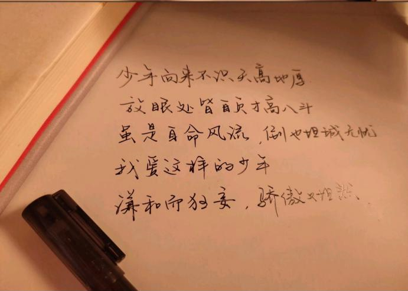 少年向来不识天高地厚
放眼处皆自负才高八斗
虽是自命风流，倒也坦诚无忧
我爱这样的少年
谦和而狂妄，骄傲又坦然。